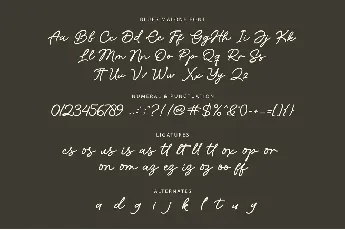 Aa Bb Cc Dd Ee Ff Gg Hh Ii Jj Kk
Ll Mm Nn Oo Pp Qq Rr Ss
Tt Uu Vv Ww Xx Yy Zz
NUMERAL & PUNCTUATION
0123456789 ..:;?!/@#$%^&()-+_=[]{}
LIGATURES
cs os us is as tl tt ll tt ox op or
on om az ez iz oz oo ff
ALTERNATES
a d g i j k l t u y